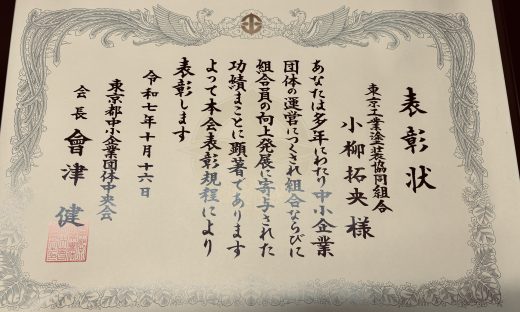 表彰状
東京工業塗装協同組合
小柳拓央様
あなたは多年にわたり中小企業
団体の運営につくされ組合ならびに
組合員の向上発展に寄与された
功績まことに顕著であります
よって本会表彰規程により
表彰します
令和七年十月十六日
東京都中小企業団体中央会
会長 會津健